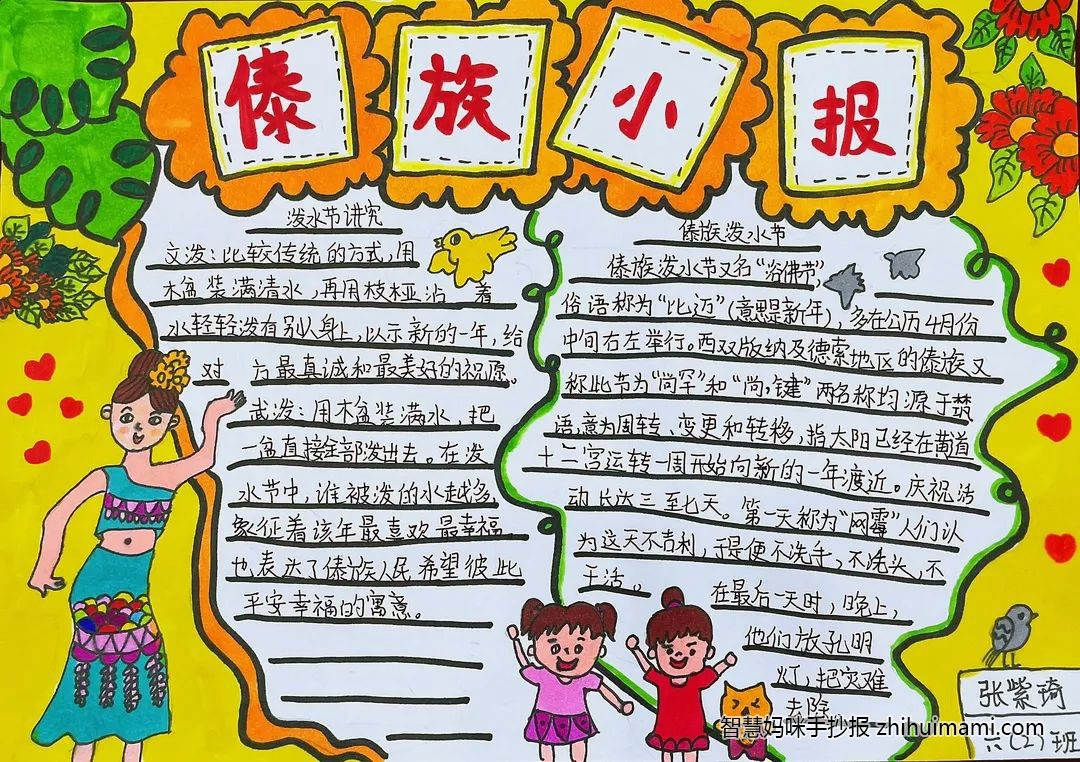 傣族小报
泼水节讲究
文泼：比较传统的方式，用
木盆装满清水，再用枝桠沾着
水轻轻泼有别人身上，以示新的一年，给
对六最真诚和最美好的祝愿。
武泼：用木盆装满水，把
一盆直接全部泼出去。在泼
水节中，谁被泼的水越多，
象征着该年最喜欢最幸福，
也表达了傣族人民希望彼此
平安幸福的寓意。
傣族泼水节
傣族泼水节又名“浴佛节”
俗语称为“比迈”（意思是新年），多在公历4月份
中间右左举行。西双版纳及德索地区的傣族又
称此节为“尚罕”和“尚，键”两名称均源于梵
语，意为周转、变更和转移，指太阳已经在黄道
十二宫运转一周开始向新的一年渡近。庆祝活
动长达三至七天。第一天称为“网霉”人们认
为这天不吉利，于是便不洗手，不洗头，不
干活。在最后一天时，晚上，
他们放孔明
灯，把灾难
去除
张紫琦
六（2）班
智慧妈咪手抄报-zhihuimami.com